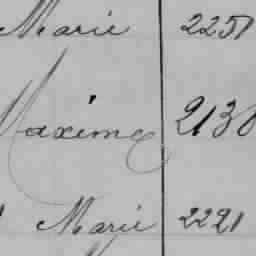 Marie 2251
Maxime 2138
Marie 2221